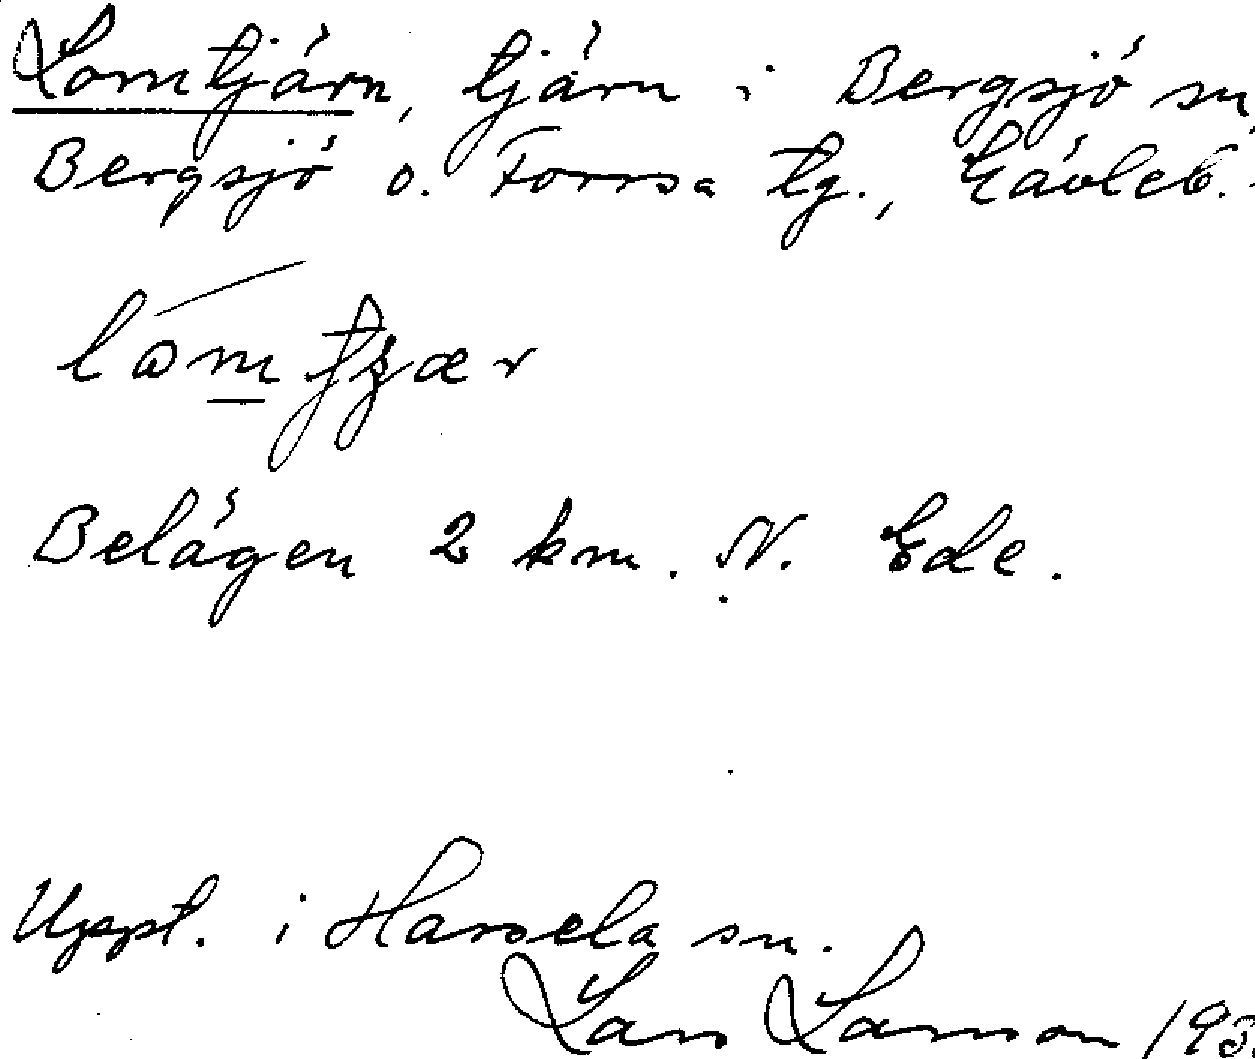 Lomtjärn, tjärn i Bergsjö sn,
Bergsjö o. Forssa tg., Gävleb.
Belägen 2 km. N. Ede.
Uppt. i Hassela sn.
Lars Larsson 193